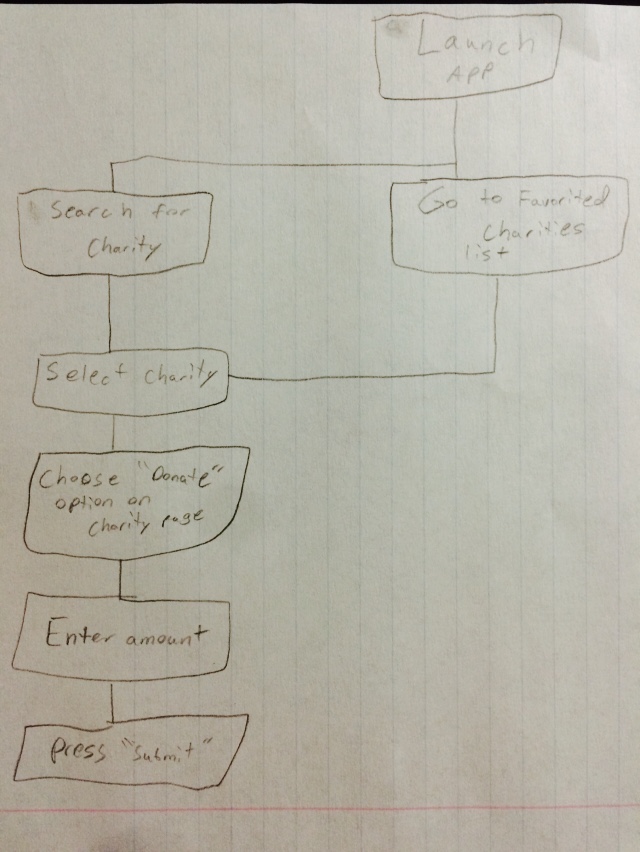 Launch
APP
Search for
Charity
Go to Favorited
Charities
list
Select Charity
Choose "Donate"
option on
Charity page
Enter amount
Press "Submit"